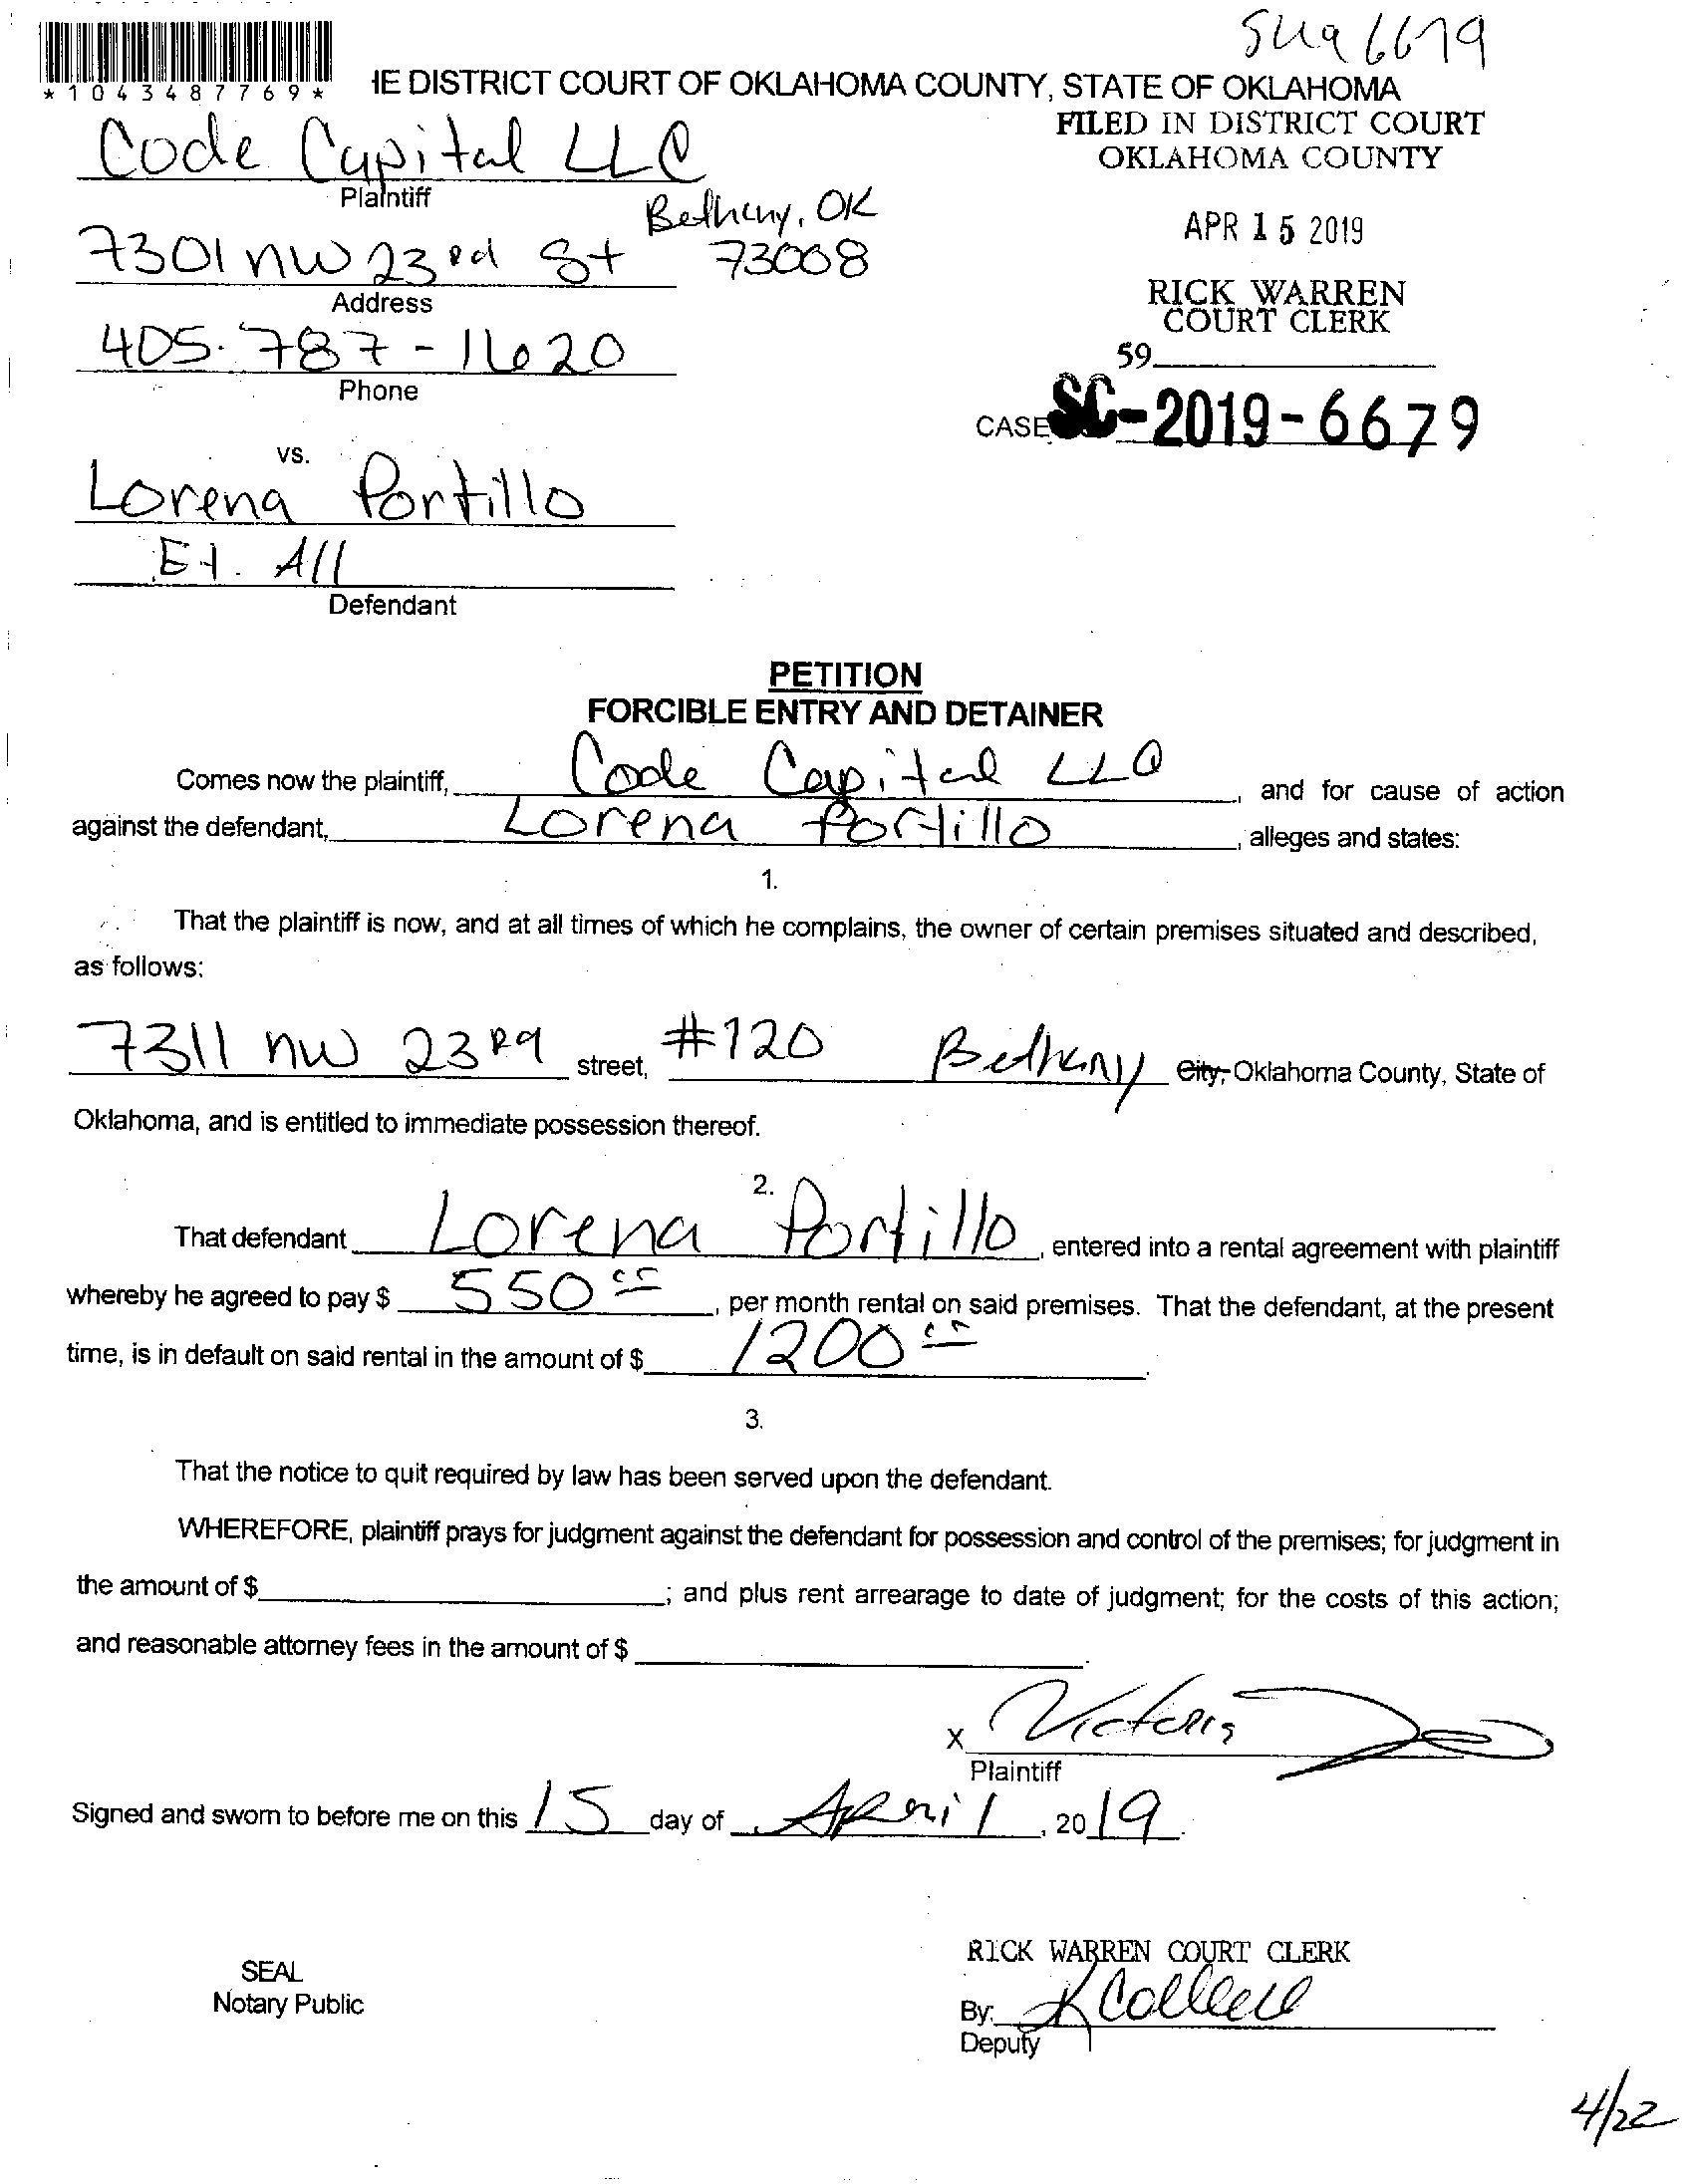 *1043487769*
HE DISTRICT COURT OF OKLAHOMA COUNTY, STATE OF OKLAHOMA
FILED IN DISTRICT COURT
OKLAHOMA COUNTY
Code Capital LLC
Plaintiff
Bethany, OK
73008
7301 NW 23rd St
Address
APR 15 2019
RICK WARREN
COURT CLERK
405-787-1620
Phone
59
CASE SC-2019-6679
vs.
Lorena Portillo
Et. All
Defendant
PETITION
FORCIBLE ENTRY AND DETAINER
Comes now the plaintiff, Code Capital LLC, and for cause of action
against the defendant, Lorena Portillo, alleges and states:
1.
That the plaintiff is now, and at all times of which he complains, the owner of certain premises situated and described,
as follows:
7311 NW 23rd street, #120 Bethany City, Oklahoma County, State of
Oklahoma, and is entitled to immediate possession thereof.
2.
That defendant Lorena Portillo, entered into a rental agreement with plaintiff
whereby he agreed to pay $ 550 00, per month rental on said premises. That the defendant, at the present
time, is in default on said rental in the amount of $ 1200 00.
3.
That the notice to quit required by law has been served upon the defendant.
WHEREFORE, plaintiff prays for judgment against the defendant for possession and control of the premises; for judgment in
the amount of $ ; and plus rent arrearage to date of judgment; for the costs of this action;
and reasonable attorney fees in the amount of $ .
X Victoria
Plaintiff
Signed and sworn to before me on this 15 day of April, 2019.
SEAL
Notary Public
RICK WARREN COURT CLERK
By:
Deputy
4/22